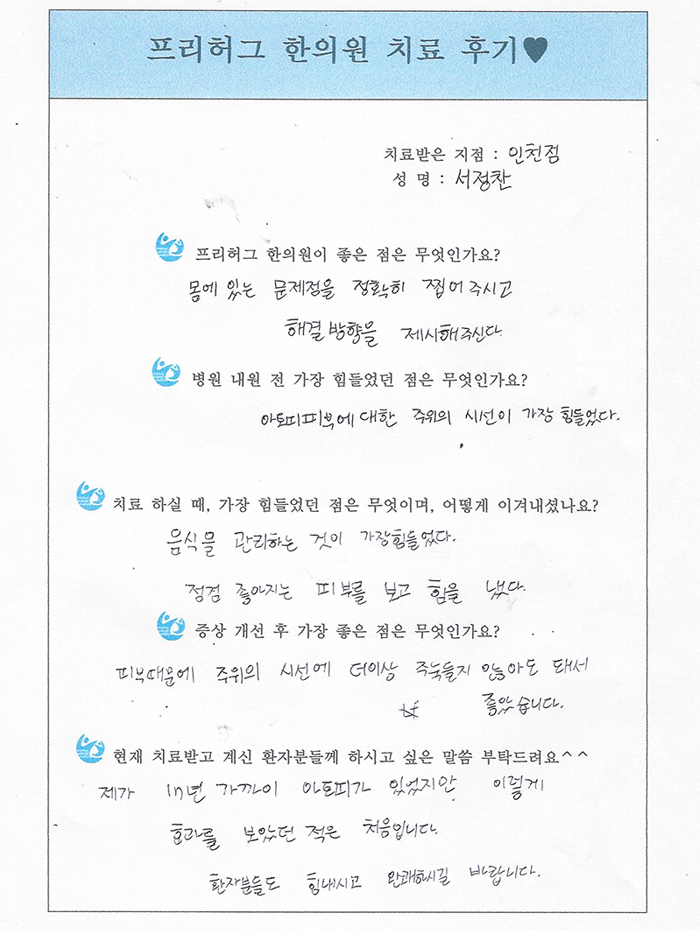 프리허그 한의원 치료 후기♥
치료받은 지점 : 인천점
성 명 : 서정찬
프리허그 한의원이 좋은 점은 무엇인가요?
몸에 있는 문제점을 정확히 찝어 주시고
해결 방향을 제시해주신다.
병원 내원 전 가장 힘들었던 점은 무엇인가요?
아토피피부에 대한 주위의 시선이 가장 힘들었다.
치료 하실 때, 가장 힘들었던 점은 무엇이며, 어떻게 이겨내셨나요?
음식물 관리하는 것이 가장힘들었다.
점점 좋아지는 피부를 보고 힘을 냈다.
증상 개선 후 가장 좋은 점은 무엇인가요?
피부때문에 주위의 시선에 더이상 주눅들지 않아도 돼서
좋았습니다.
현재 치료받고 계신 환자분들께 하시고 싶은 말씀 부탁드려요^^
제가 17년 가까이 아토피가 있었지만 이렇게
효과를 보았던 적은 처음입니다.
환자분들도 힘내시고 완쾌하시길 바랍니다.